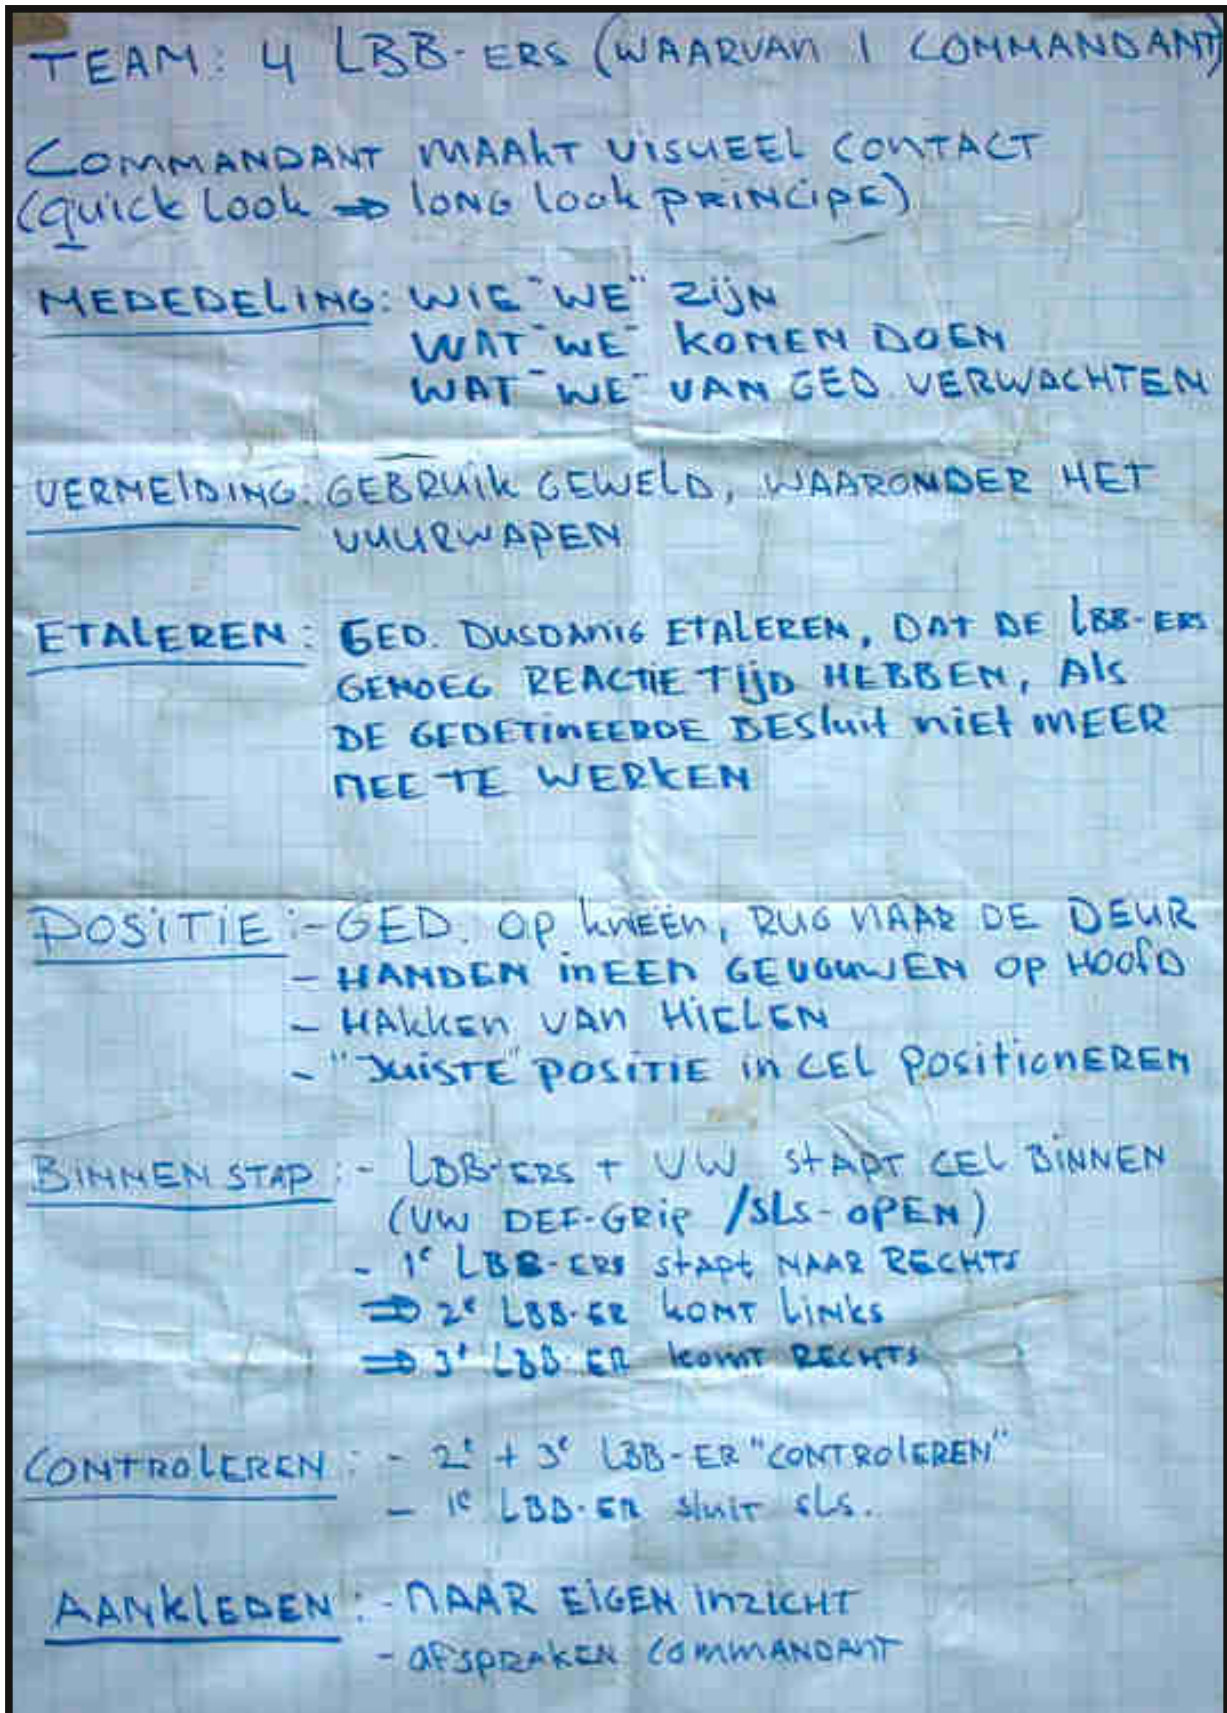 TEAM: 4 LBB-ERS (WAARVAN 1 COMMANDANT)
COMMANDANT MAAKT VISUEEL CONTACT
(quick look ⇒ long look PRINCIPE)
MEDEDELING: WIE "WE" ZIJN
WAT "WE" KOMEN DOEN
WAT "WE" VAN GED. VERWACHTEN
VERMELDING: GEBRUIK GEWELD, WAARONDER HET
VUURWAPEN
ETALEREN: GED. DUSDANIG ETALEREN, DAT DE LBB-ERS
GENOEG REACTIE TIJD HEBBEN, ALS
DE GEDETINEERDE BESLUIT NIET MEER
MEE TE WERKEN
POSITIE: - GED. OP KNEËN, RUG NAAR DE DEUR
- HANDEN INEEN GEVOUWEN OP HOOFD
- HAKKEN VAN HIELEN
- "JUISTE" POSITIE IN CEL POSITIONEREN
BINNENSTAP: - LBB-ERS + VW STAPT CEL BINNEN
(VW DEF-GRIP / SLS-OPEN)
- 1e LBB-ERS STAPT NAAR RECHTS
⇒ 2e LBB-ER KOMT LINKS
⇒ 3e LBB-ER KOMT RECHTS
CONTROLEREN: - 2e + 3e LBB-ER "CONTROLEREN"
- 1e LBB-ER SLUIT SLS.
AANKLEDEN: - NAAR EIGEN INZICHT
- AFSPRAKEN COMMANDANT